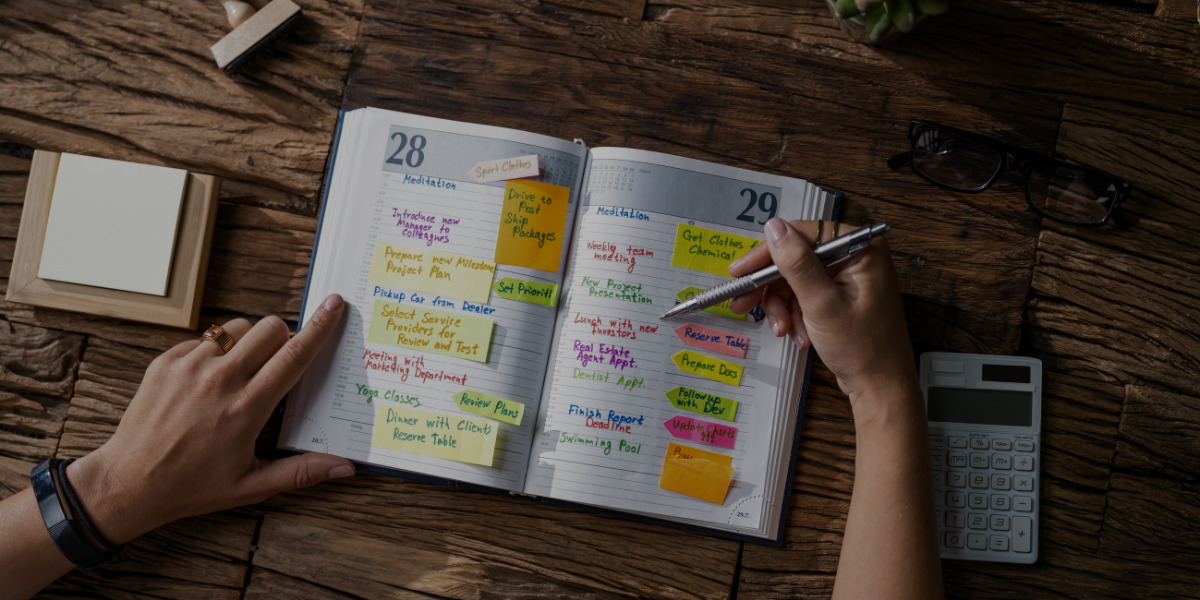 28
Sport Clothes
Meditation
Drive to
Post
Ship
Packages
Introduce new
Manager to
Colleagues
Prepare new Milestone
Project Plan
Set Prioriti
Pickup Car from Dealer
Select Service
Providers for
Review and Test
Meeting with
Marketing Department
Yoga Classes
Review Plans
Dinner with Clients
Reserve Table
28.7.
29
Meditation
Get Clothes
Chemical
Weekly team
meeting
New Project
Presentation
Lunch with new
Investors
Reserve Table
Real Estate
Agent Appt.
Prepare Docs
Dentist Appt.
Followup
with Dev
Finish Report
Deadline
Update Charts
Swimming Pool
29.7.